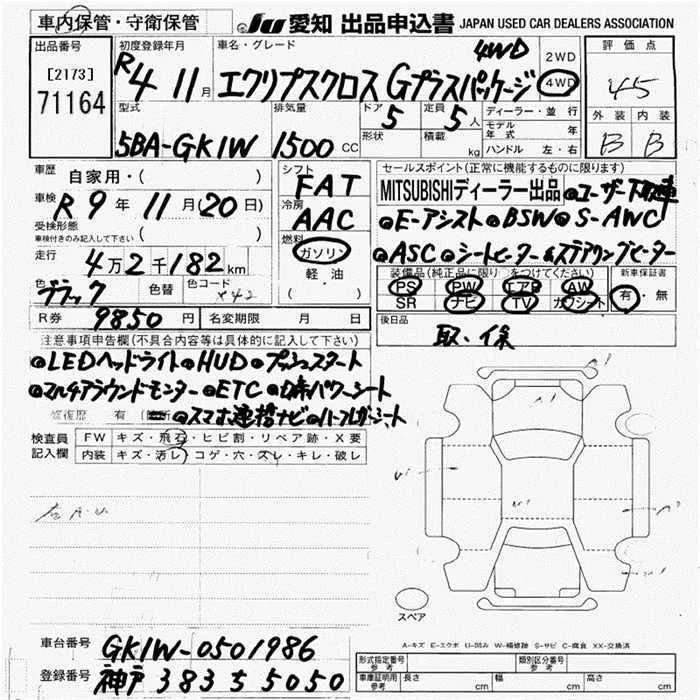 車内保管・守衛保管
JU 愛知 出品申込書 JAPAN USED CAR DEALERS ASSOCIATION
出品番号 初度登録年月 車名・グレード 4WD 2WD 評価点
[2173] R4 11月 エクリプスクロス Gプラスパッケージ 4WD 45
71164
型式 排気量 ドア 5 定員 5人 ディーラー・並行 外装 内装
5BA-GK1W 1500 CC 形状 積載 kg モデル年式 年 B B
ハンドル 左・右
車歴 自家用・( ) シフト FAT セールスポイント(正常に機能するものに限ります)
車検 R9年11月(20日) 冷房 AAC MITSUBISHIディーラー出品 ●ユーザー下取車
受検形態 車検付きのみ記入して下さい ( ) 燃料 ガソリン ●E-アシスト ●BSW ●S-AWC
走行 4万2千182km 軽油 ●ASC ●シートヒーター&ステアリングヒーター
色 ブラック 色替 色コード X42 ( )
装備品(純正品に限り○をつけてください) 新車保証書
PS PW エアB AW 有・無
SR ナビ TV カワシート
R券 9850円 名変期限 月 日 後日品
取・保
注意事項申告欄(不具合内容等は具体的に記入して下さい)
●LEDヘッドライト ●HUD ●プッシュスタート
●マルチアラウンドモニター ●ETC ●D席パワーシート
修復歴 有 ●スマホ連携ナビ ●ハーフレザーシート
検査員記入欄 FW キズ・飛石・ヒビ割・リペア跡・X要
内装 キズ・汚レ・コゲ・穴・スレ・キレ・破レ
スペア
A-キズ E-エクボ U-凹み W-補修跡 S-サビ C-腐食 XX-交換済
車台番号 GK1W-0501986
登録番号 神戸 383 す 5050
形式指定番号 参考 類別区分番号 参考
車庫証明用 参考 長さ cm 幅 cm 高さ cm